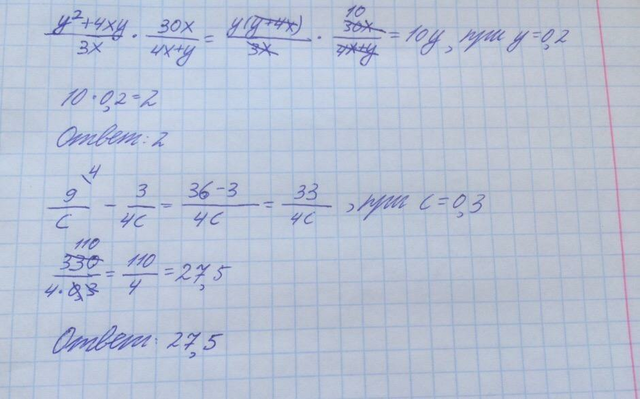 (y²+4xy)/(3x) · (30x)/(4x+y) = (y(y+4x))/(3x) · (30x)/(4x+y) 10 = 10y, при y=0,2
10·0,2=2
Ответ: 2
9/c 4 - 3/(4c) = (36-3)/(4c) = 33/(4c), при c=0,3
110 330/(4·0,3) = 110/4 = 27,5
Ответ: 27,5